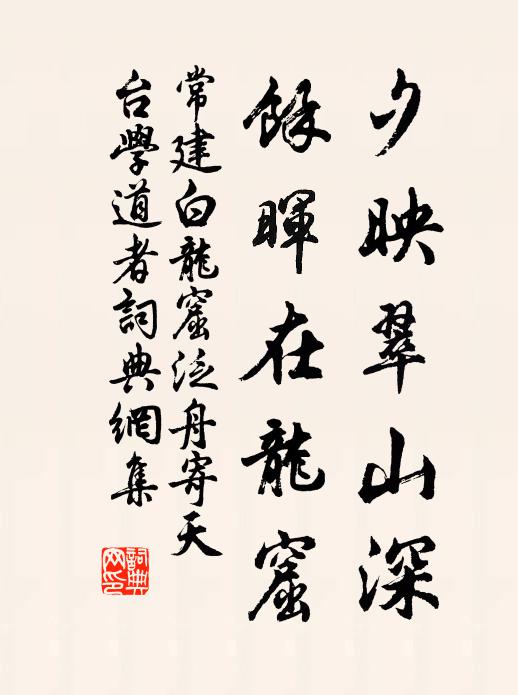 夕映翠山深
餘暉在龍窟
常建白龍窟泛舟寄天
台學道者詞典網集
詞典
网印